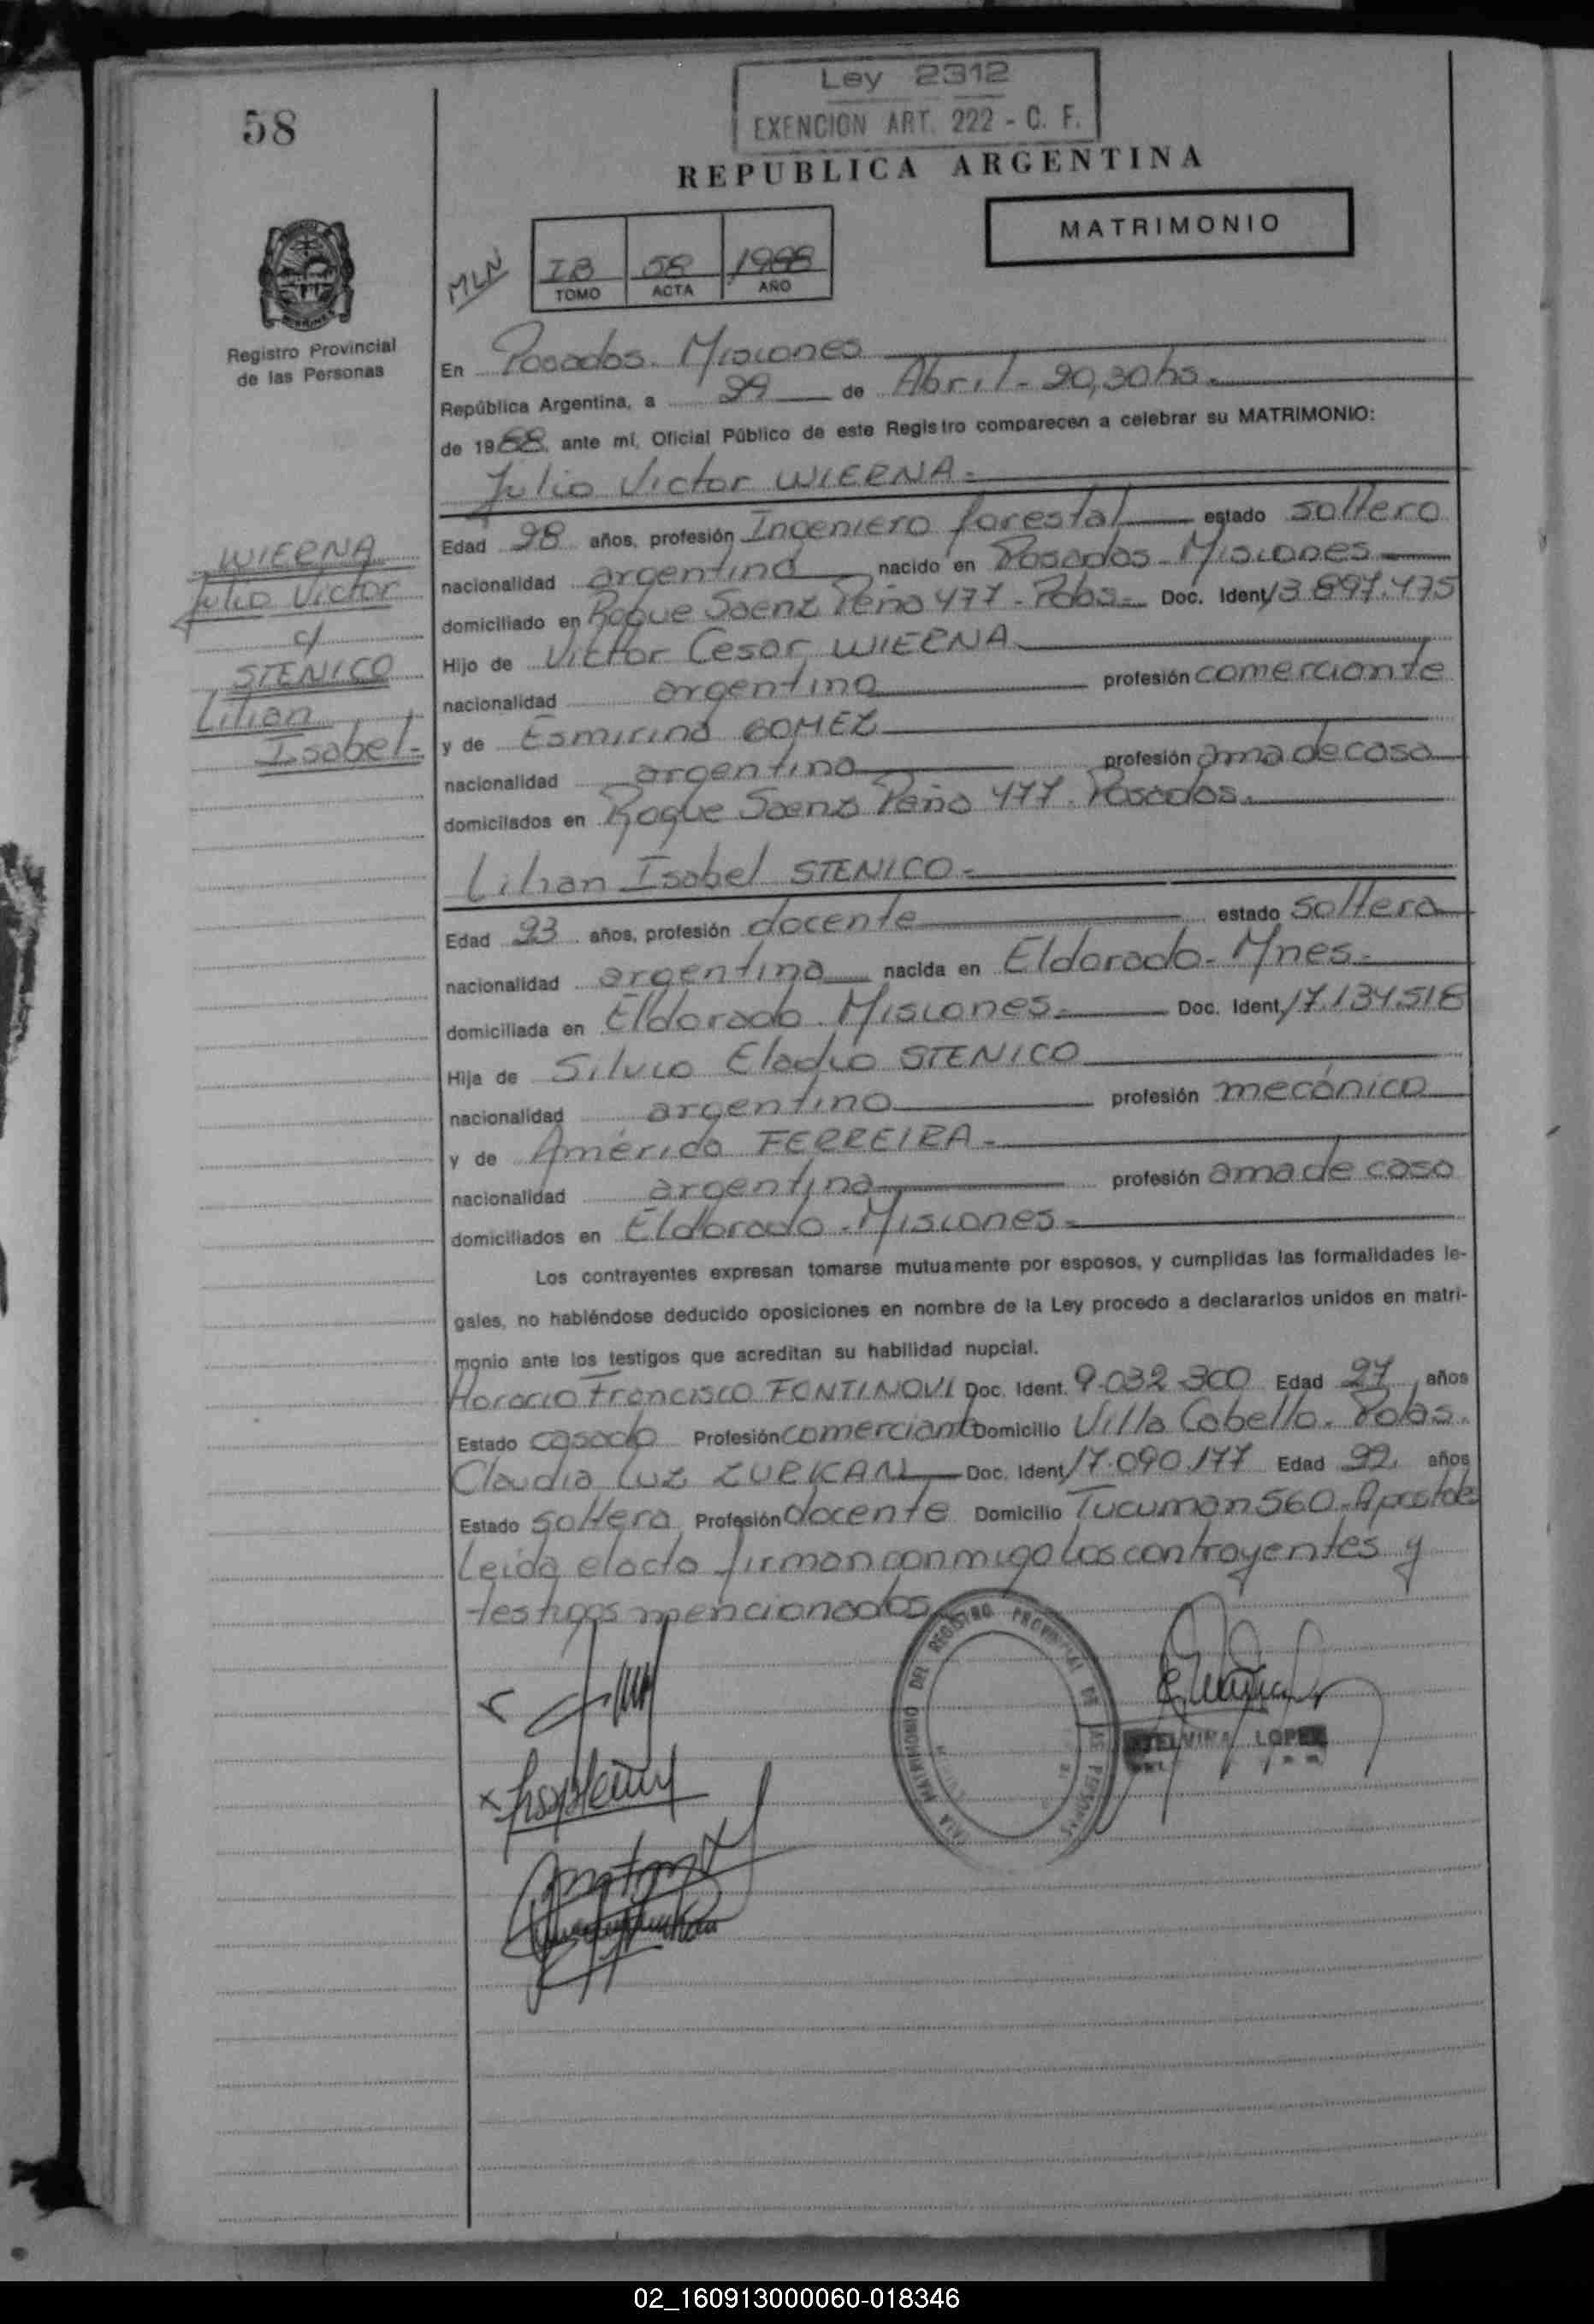 Ley 2312
EXENCION ART. 222 - C. F.
58
REPUBLICA ARGENTINA
MATRIMONIO
MLN
IB 58 1988
TOMO ACTA AÑO
Registro Provincial
de las Personas
En Posadas. Misiones
República Argentina, a 29 de Abril - 20,30 hs.
de 1988, ante mí, Oficial Público de este Registro comparecen a celebrar su MATRIMONIO:
Julio Victor WIERNA.
Edad 28 años, profesión Ingeniero forestal estado soltero
nacionalidad argentina nacido en Posadas - Misiones
domiciliado en Roque Saenz Peña 477 - Pdas - Doc. Ident. 13.897.475
Hijo de Victor Cesar WIERNA
nacionalidad argentina profesión comerciante
y de Esmirina GOMEZ
nacionalidad argentina profesión ama de casa
domicilados en Roque Saenz Peña 477. Posadas.
WIERNA
Julio Victor
c/
STENICO
Lilian
Isabel-
Lilian Isabel STENICO-
Edad 23 años, profesión docente estado soltera
nacionalidad argentina nacida en Eldorado - Mnes -
domiciliada en Eldorado - Misiones - Doc. Ident. 17.134.518
Hija de Silvio Eladio STENICO
nacionalidad argentino profesión mecánico
y de Amérida FERREIRA -
nacionalidad argentina profesión ama de casa
domiciliados en Eldorado - Misiones -
Los contrayentes expresan tomarse mutuamente por esposos, y cumplidas las formalidades le-
gales, no habiéndose deducido oposiciones en nombre de la Ley procedo a declararlos unidos en matri-
monio ante los testigos que acreditan su habilidad nupcial.
Horacio Francisco FONTINOVI Doc. Ident. 9.032.300 Edad 27 años
Estado casado Profesión comerciante Domicilio Villa Cabello. Pdas.
Claudia Luz ZURKAN Doc. Ident. 17.090.177 Edad 22 años
Estado soltera Profesión docente Domicilio Tucuman 560 - Apostoles
Leida el acta firman conmigo los contrayentes y
testigos mencionados
SALA MATRIMONIO DEL REGISTRO PROVINCIAL DE LAS PERSONAS
ETELVINA LOPEZ
02_160913000060-018346